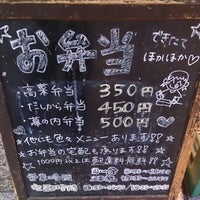 お弁当
できたて
ほかほか♡
高菜弁当 350円
だしから弁当 450円
幕の内弁当 500円
他にも色々メニューあります!!
お弁当の宅配も承ります!!
1000円以上は配達無料!!